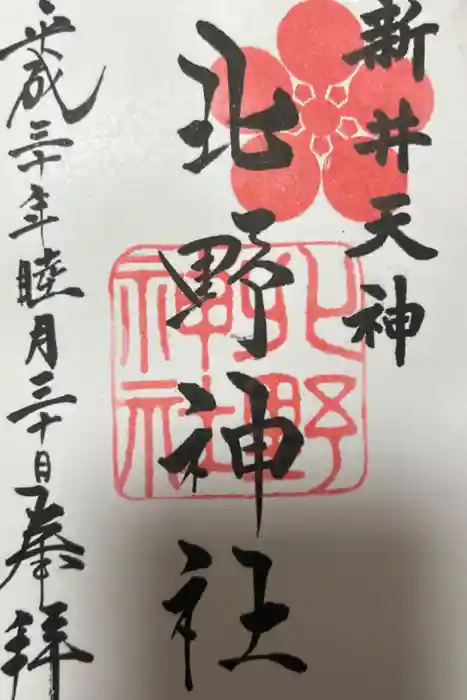 新井天神
北野神社
北野神社
平成三十年睦月三十日奉拝